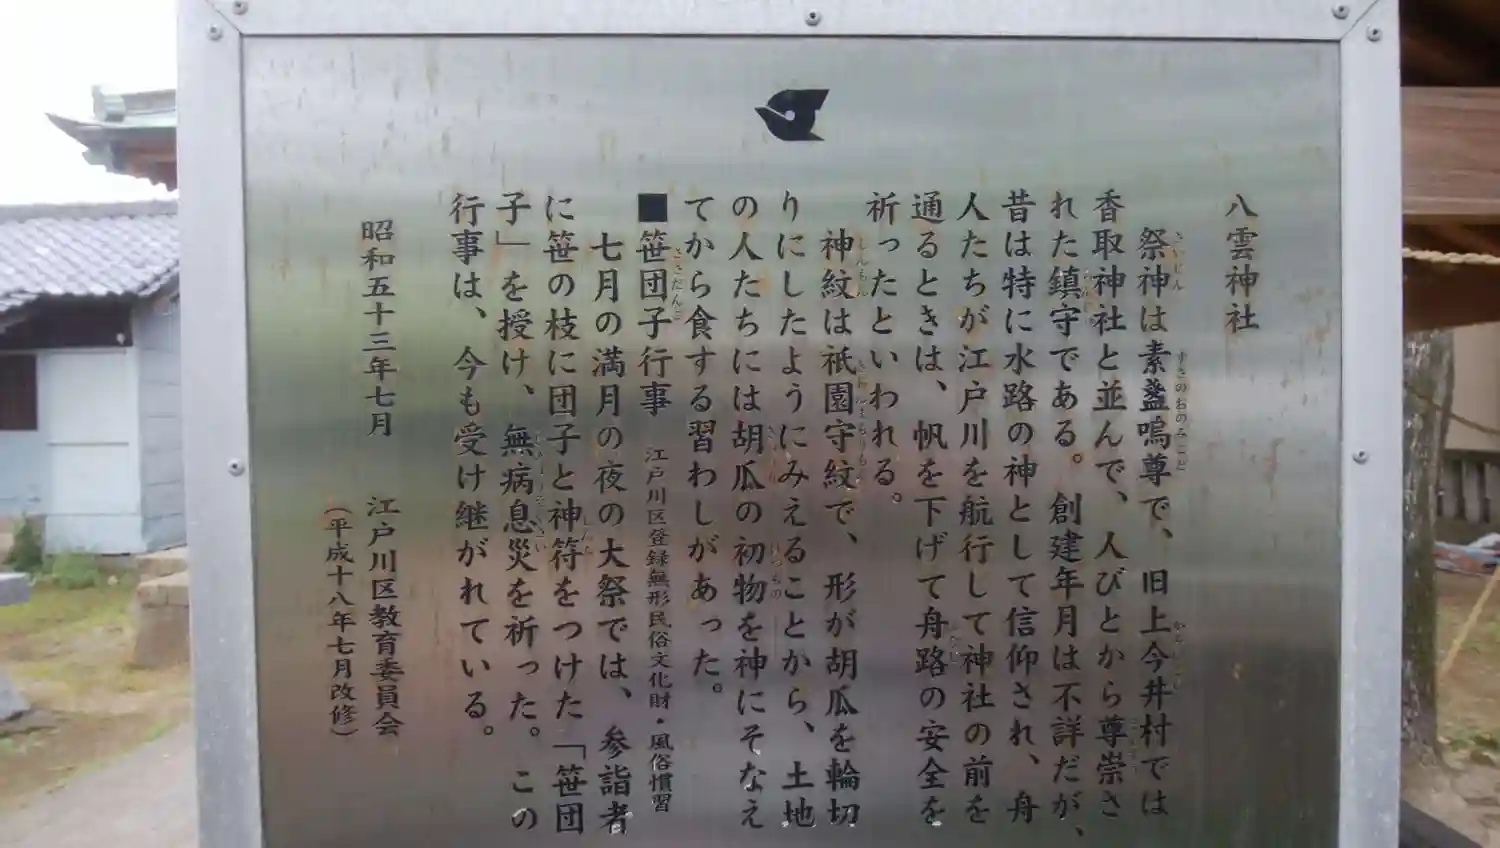 八雲神社
祭神は素盞嗚尊で、旧上今井村では
香取神社と並んで、人びとから尊崇さ
れた鎮守である。創建年月は不詳だが、
昔は特に水路の神として信仰され、舟
人たちが江戸川を航行して神社の前を
通るときは、帆を下げて舟路の安全を
祈ったといわれる。
神紋は祇園守紋で、形が胡瓜を輪切
りにしたようにみえることから、土地
の人たちには胡瓜の初物を神にそなえ
てから食する習わしがあった。
■笹団子行事 江戸川区登録無形民俗文化財・風俗慣習
七月の満月の夜の大祭では、参詣者
に笹の枝に団子と神符をつけた「笹団
子」を授け、無病息災を祈った。この
行事は、今も受け継がれている。
昭和五十三年七月 江戸川区教育委員会
（平成十八年七月改修）